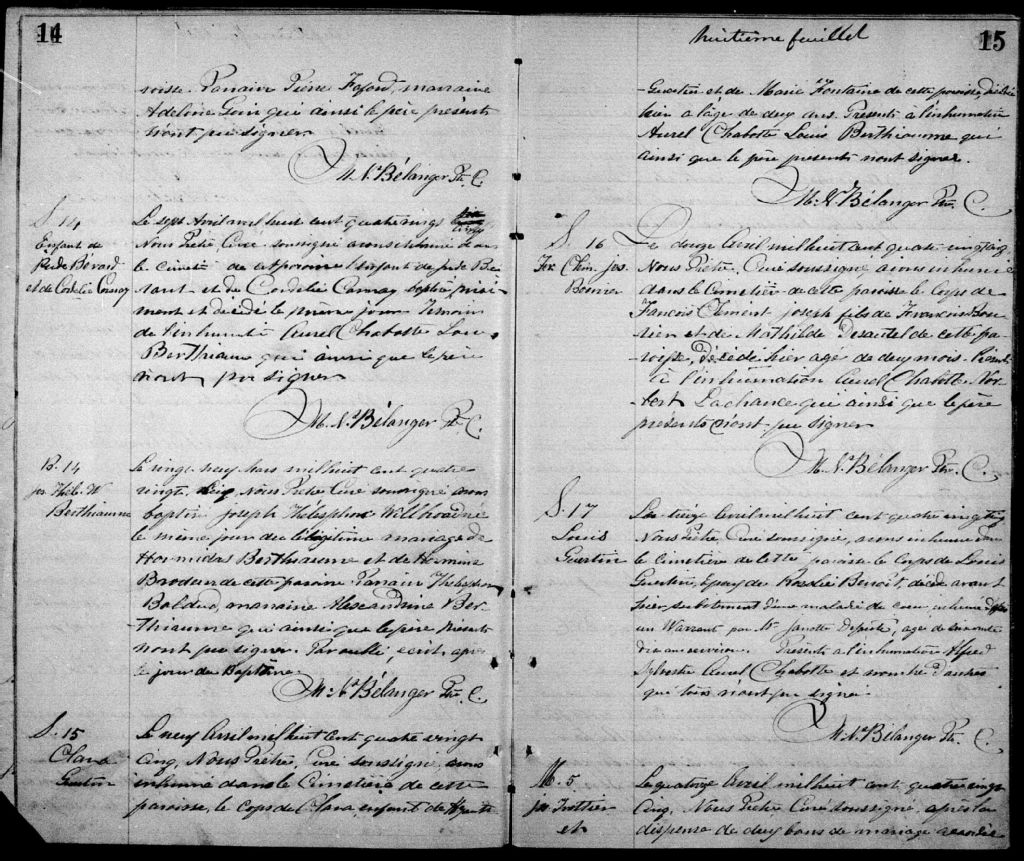 14
roisse. Parrain Pierre Fafard, marraine
Adeline qui ainsi le père présents
n'ont pu signer
M. N. Bélanger Ptr. C.
S. 14
Enfant de
de Bérard
et de Cordelie
Le sept Avril mil huit cent quatrevingt cinq
Nous Prêtre Curé soussigné avons inhumé dans
le cimetière de cet paroisse l'enfant de de Bé
rard et de Cordelie
ment et décédé le même jour Témoin
de l'inhumation Aurel Chabotte Louis
Berthiaume qui ainsi que le père
n'ont pu signer
M. N. Bélanger Ptr. C.
B. 14
jos Théles. W
Berthiaume
Le vingt neuf Mars mil huit cent quatre
vingt cinq Nous Prêtre Curé soussigné avons
baptisé Joseph Télesphore Willbroad né
le même jour du légitime mariage de
Hormidas Berthiaume et de Hermine
Brodeur de cette paroisse Parrain Thélesphore
Balduc, marraine Alexandrine Ber-
thiaume qui ainsi que le père présents
n'ont pu signer Par oublie, écrit après
le jour du Baptême
M. N. Bélanger Ptr. C.
S. 15
Clara
Guertin
Le neuf Avril mil huit cent quatre vingt
cinq, Nous Prêtre, Curé soussigné, avons
inhumé dans le Cimetière de cette
paroisse, le Corps de Clara enfant de
huitième feuillet
15
Guertin et de Marie Fontaine de cette paroisse, décédée
hier à l'âge de deux ans. Présents à l'inhumation
Aurel Chabotte Louis Berthiaume qui
ainsi que le père présents n'ont signer.
M. N. Bélanger Ptr. C.
S. 16
Frs Clém. jos.
Bouvier
Le douze Avril mil huit cent quatre vingt cinq
Nous Prêtre, Curé soussigné avons inhumé
dans le Cimetière de cette paroisse le Corps de
François Clément joseph fils de François Bou
vier et de Mathilde Desautel de cette pa-
roisse, Décédé hier agé de deux mois. Présents
à l'inhumation Aurel Chabotte Nor-
bert Lachance qui ainsi que le père
présents n'ont pu signer
M. N. Bélanger Ptr. C.
S. 17
Louis
Guertin
Le treize Avril mil huit cent quatre vingt cinq
Nous Prêtre, Curé soussigné, avons inhumé dans
le cimetière de cette paroisse le Corps de Louis
Guertin, Epoux de Rosalie Benoit, décédé avant
hier subitement d'une maladie de coeur, inhumé d'après
un Warrent par Mr Janotte Députe, agé de
dix ans environ. Présents à l'inhumation Alfred
Sylvestre Aurel Chabotte et nombre d'autres
qui tous n'ont pu signé.
M. N. Bélanger Ptr. C.
M. 5
jos Trottier
et
Le quatorze Avril mil huit cent quatre vingt
cinq, Nous Prêtre Curé soussigné, après la
dispense de deux bans de mariage accordée